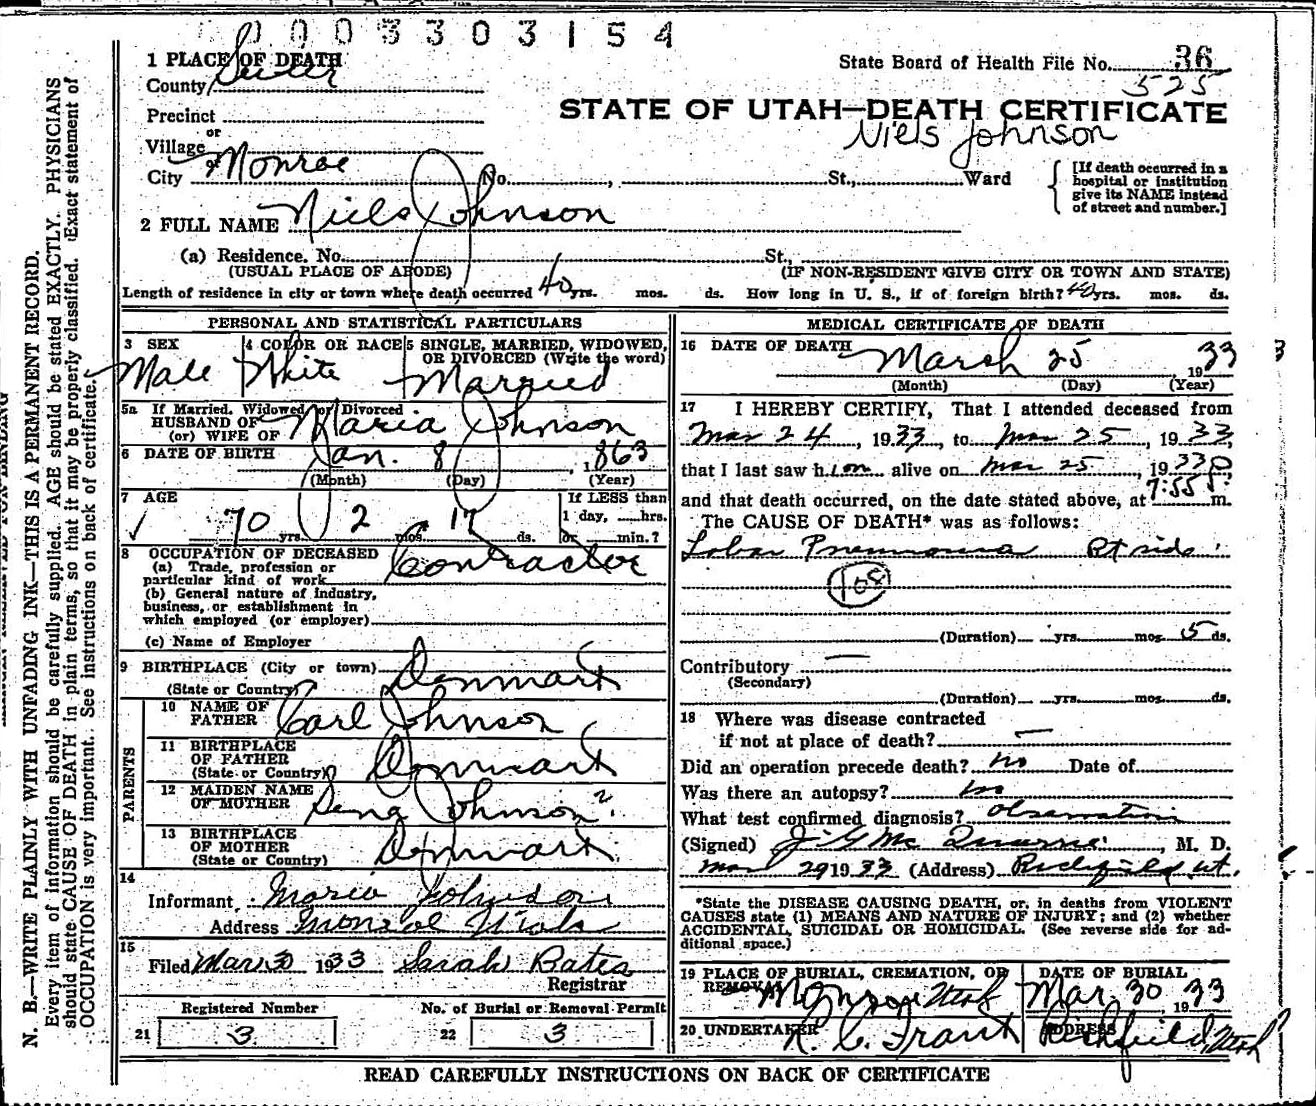 0003303154
1 PLACE OF DEATH
County Sevier
State Board of Health File No. 36
525
Precinct
or
Village
or
City Monroe No. , St., Ward
STATE OF UTAH—DEATH CERTIFICATE
Niels Johnson
[If death occurred in a hospital or institution give its NAME instead of street and number.]
2 FULL NAME Niels Johnson
(a) Residence. No. St.,
(USUAL PLACE OF ABODE) (IF NON-RESIDENT GIVE CITY OR TOWN AND STATE)
Length of residence in city or town where death occurred 40 yrs. mos. ds. How long in U. S., if of foreign birth? 40 yrs. mos. ds.
PERSONAL AND STATISTICAL PARTICULARS
3 SEX 4 COLOR OR RACE 5 SINGLE, MARRIED, WIDOWED,
OR DIVORCED (Write the word)
Male White Married
5a If Married, Widowed or Divorced
HUSBAND OF
(or) WIFE OF Maria Johnson
6 DATE OF BIRTH Jan. 8, 1863
(Month) (Day) (Year)
7 AGE
70 yrs. 2 mos. 17 ds.
If LESS than
1 day, hrs.
or min.?
8 OCCUPATION OF DECEASED
(a) Trade, profession or
particular kind of work Contractor
(b) General nature of industry,
business, or establishment in
which employed (or employer)
(c) Name of Employer
9 BIRTHPLACE (City or town)
(State or Country) Denmark
PARENTS
10 NAME OF
FATHER Carl Johnson
11 BIRTHPLACE
OF FATHER
(State or Country) Denmark
12 MAIDEN NAME
OF MOTHER Sena Johnson ?
13 BIRTHPLACE
OF MOTHER
(State or Country) Denmark
14
Informant Maria Johnson
Address Monroe Utah
15
Filed Mar 30 1933 Sarah Bates
Registrar
Registered Number No. of Burial or Removal Permit
21 3 22 3
MEDICAL CERTIFICATE OF DEATH
16 DATE OF DEATH
March 25, 1933
(Month) (Day) (Year)
17 I HEREBY CERTIFY, That I attended deceased from
Mar 24, 1933, to Mar 25, 1933,
that I last saw him alive on Mar 25, 1933
and that death occurred, on the date stated above, at 7:55 P m.
The CAUSE OF DEATH* was as follows:
Lobar Pneumonia Rt side.
108
(Duration) yrs. mos. 5 ds.
Contributory —
(Secondary)
(Duration) yrs. mos. ds.
18 Where was disease contracted
if not at place of death? —
Did an operation precede death? no Date of
Was there an autopsy? no
What test confirmed diagnosis? Observation
(Signed) J. G. McQuarrie, M. D.
Mar 29 1933 (Address) Richfield Ut.
*State the DISEASE CAUSING DEATH, or, in deaths from VIOLENT
CAUSES state (1) MEANS AND NATURE OF INJURY; and (2) whether
ACCIDENTAL, SUICIDAL OR HOMICIDAL. (See reverse side for ad-
ditional space.)
19 PLACE OF BURIAL, CREMATION, OR
REMOVAL Monroe Utah
DATE OF BURIAL
Mar 30, 1933
20 UNDERTAKER
ADDRESS
Richfield, Utah
READ CAREFULLY INSTRUCTIONS ON BACK OF CERTIFICATE
N. B.—WRITE PLAINLY WITH UNFADING INK—THIS IS A PERMANENT RECORD.
Every item of information should be carefully supplied. AGE should be stated EXACTLY. PHYSICIANS
should state CAUSE OF DEATH in plain terms, so that it may be properly classified. (Exact statement of
OCCUPATION is very important. See instructions on back of certificate.